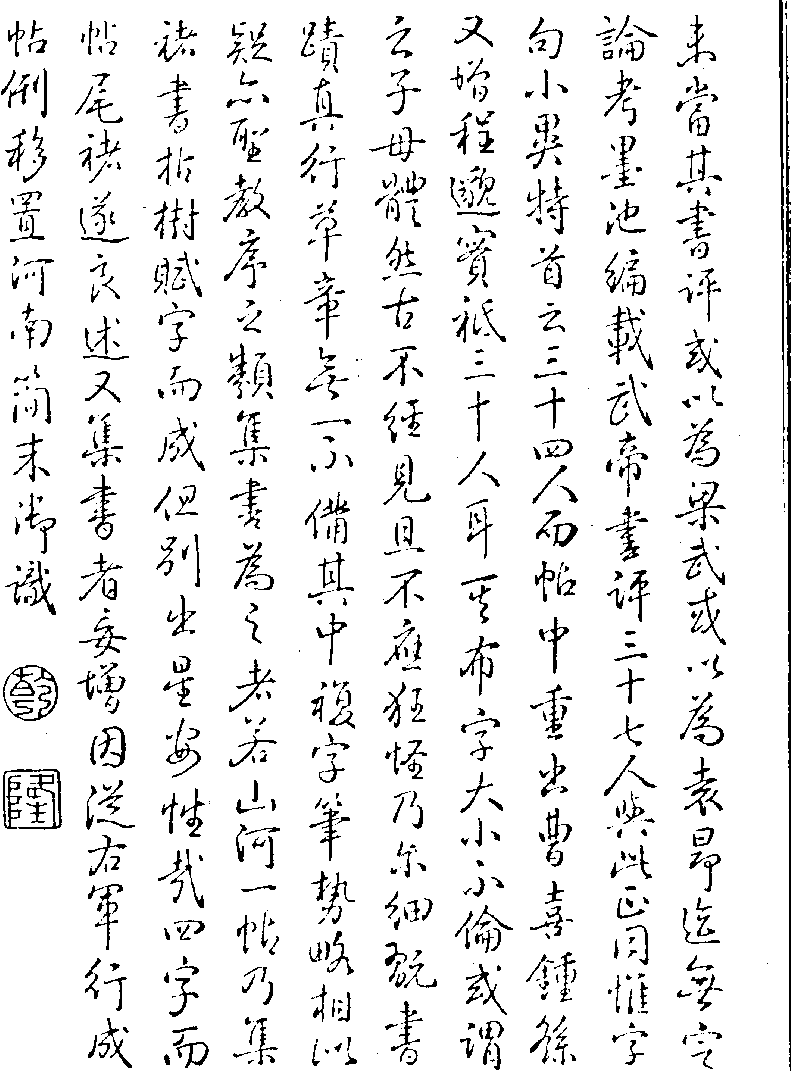 未當其書評或以為梁武或以為袁昂迄無定
論考墨池編載武帝書評三十七人與此正同惟字
句小異特首云三十四人而帖中重出曹喜鍾繇
又增程邈實祗三十人耳至布字大小不倫或謂
之子母體然古不經見且不應狂怪乃尔細翫書
蹟真行草章無一不備其中複字筆勢略相似
疑亦聖教序之類集書為之者若山河一帖乃集
褚書枯樹賦字而成但別出星安性哉四字而
帖尾褚遂良述又集書者妄增因從右軍行成
帖例移置河南簡末御識
乾
隆